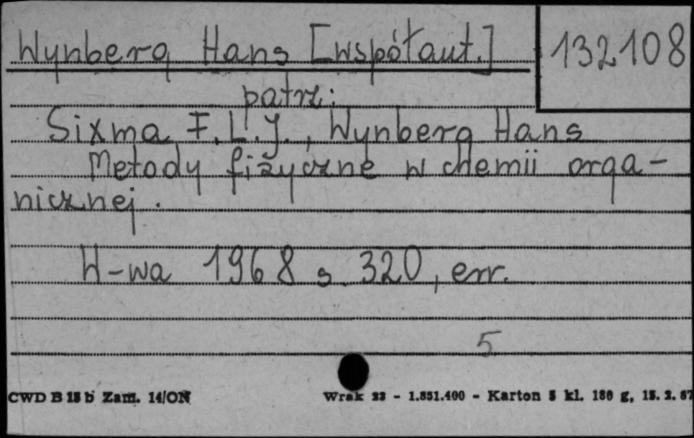 Wynberg Hans [współaut.]
132108
patrz:
Sixma F.L.J., Wynberg Hans
Metody fizyczne w chemii orga-
nicznej.
W-wa 1968 s. 320, err.
5
CWD B 15 b Zam. 14/ON
Wrak 23 - 1.851.400 - Karton 5 kl. 180 g, 15. 2. 67